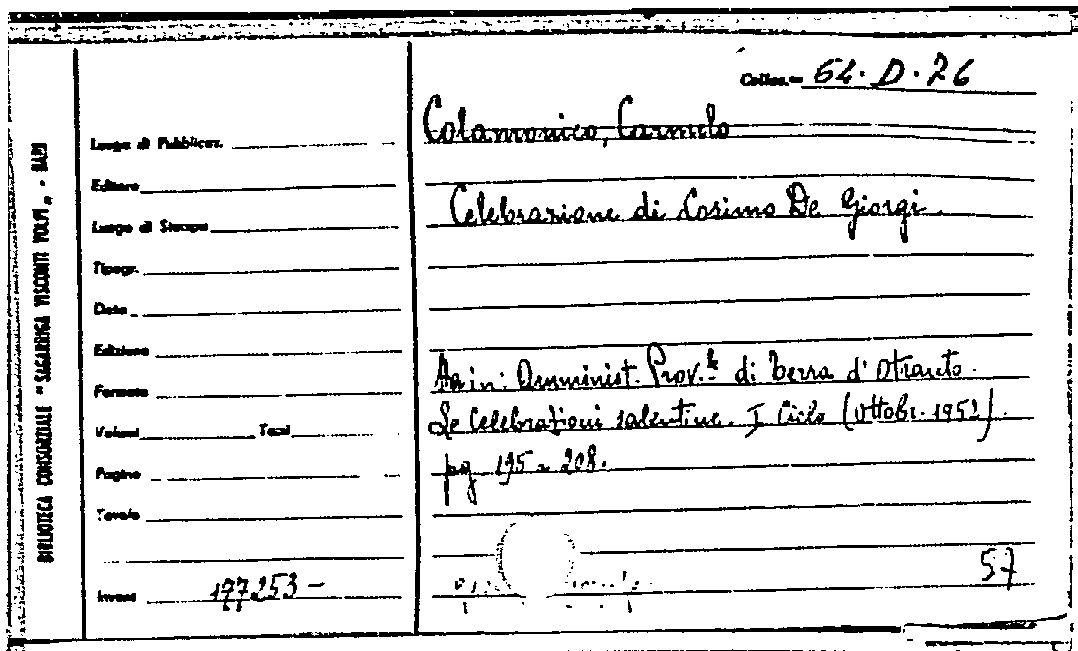 BIBLIOTECA CONSORZIALE "SAGARRIGA VISCONTI VOLPI„ - BARI
Colloc.= 64. D. 26
Luogo di Pubblicaz.
Editore
Luogo di Stampa
Tipogr.
Data
Edizione
Formato
Volumi Tomi
Pagine
Tavole
Invent 177253 -
Colamonico, Carmelo
Celebrazione di Cosimo De Giorgi.
in: Amminist. Prov.le di Terra d'Otranto.
Le Celebrazioni salentine. I Ciclo (Ottobr. 1952).
pg. 195 - 208.
57